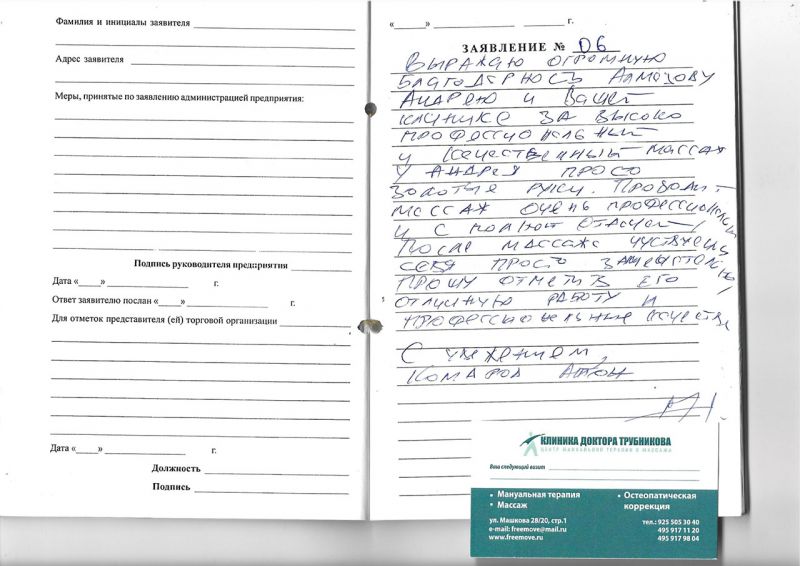 Фамилия и инициалы заявителя
Адрес заявителя
Меры, принятые по заявлению администрацией предприятия:
Подпись руководителя предприятия
Дата «___» г.
Ответ заявителю послан «___» г.
Для отметок представителя (ей) торговой организации
Дата «___» г.
Должность
Подпись
«___» г.
ЗАЯВЛЕНИЕ № 06
Выражаю огромную
благодарность
Андрею и Вашей
клинике за высоко
профессиональный
и качественный массаж
У Андрея просто
золотые руки. Проводит
массаж очень профессионально
и с полной отдачей,
После массажа чувствуешь
себя просто замечательно,
Прошу отметить его
отличную работу и
профессиональные качества
С уважением,
Комаров Антон
КЛИНИКА ДОКТОРА ТРУБНИКОВА
ЦЕНТР МАНУАЛЬНОЙ ТЕРАПИИ И МАССАЖА
Ваш следующий визит
• Мануальная терапия
• Массаж
• Остеопатическая
коррекция
ул. Машкова 28/20, стр.1
e-mail: freemove@mail.ru
www.freemove.ru
тел.: 925 505 30 40
495 917 11 20
495 917 98 04